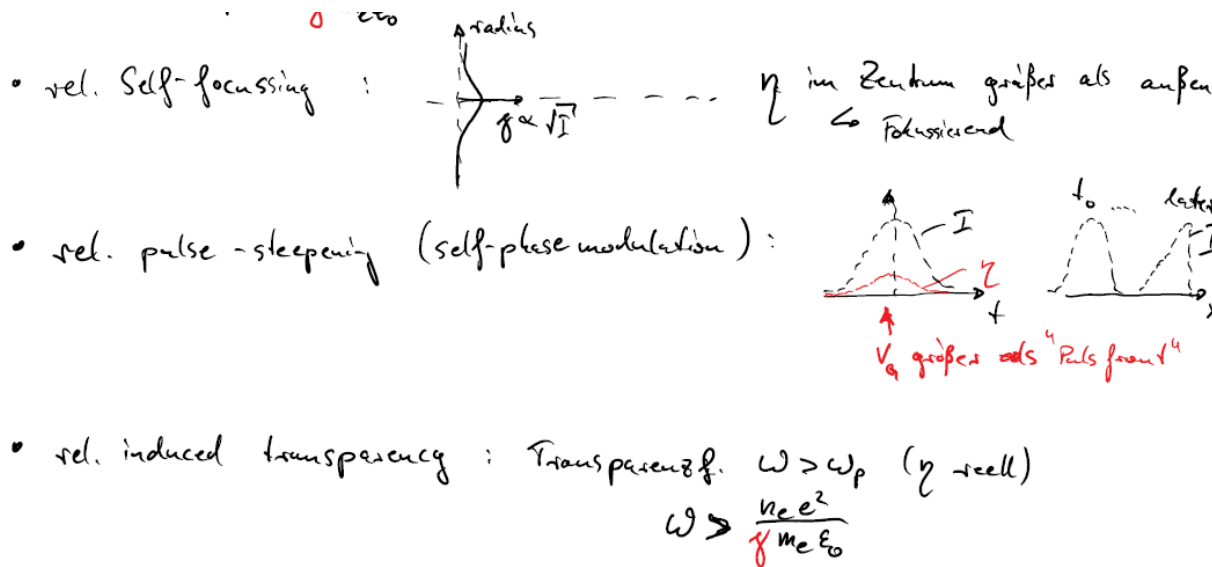 γ m_e ε₀
• rel. Self-focussing :
radius
γ ∝ √I
η im Zentrum größer als außen
↳ Fokussierend
• rel. pulse-steepening (self-phase modulation) :
I
η
t
t₀ .... later
I
x
V_G größer als "Pulsfront"
• rel. induced transparency : Transparenz f. ω > ω_p (η reell)
ω > n_e e² / γ m_e ε₀